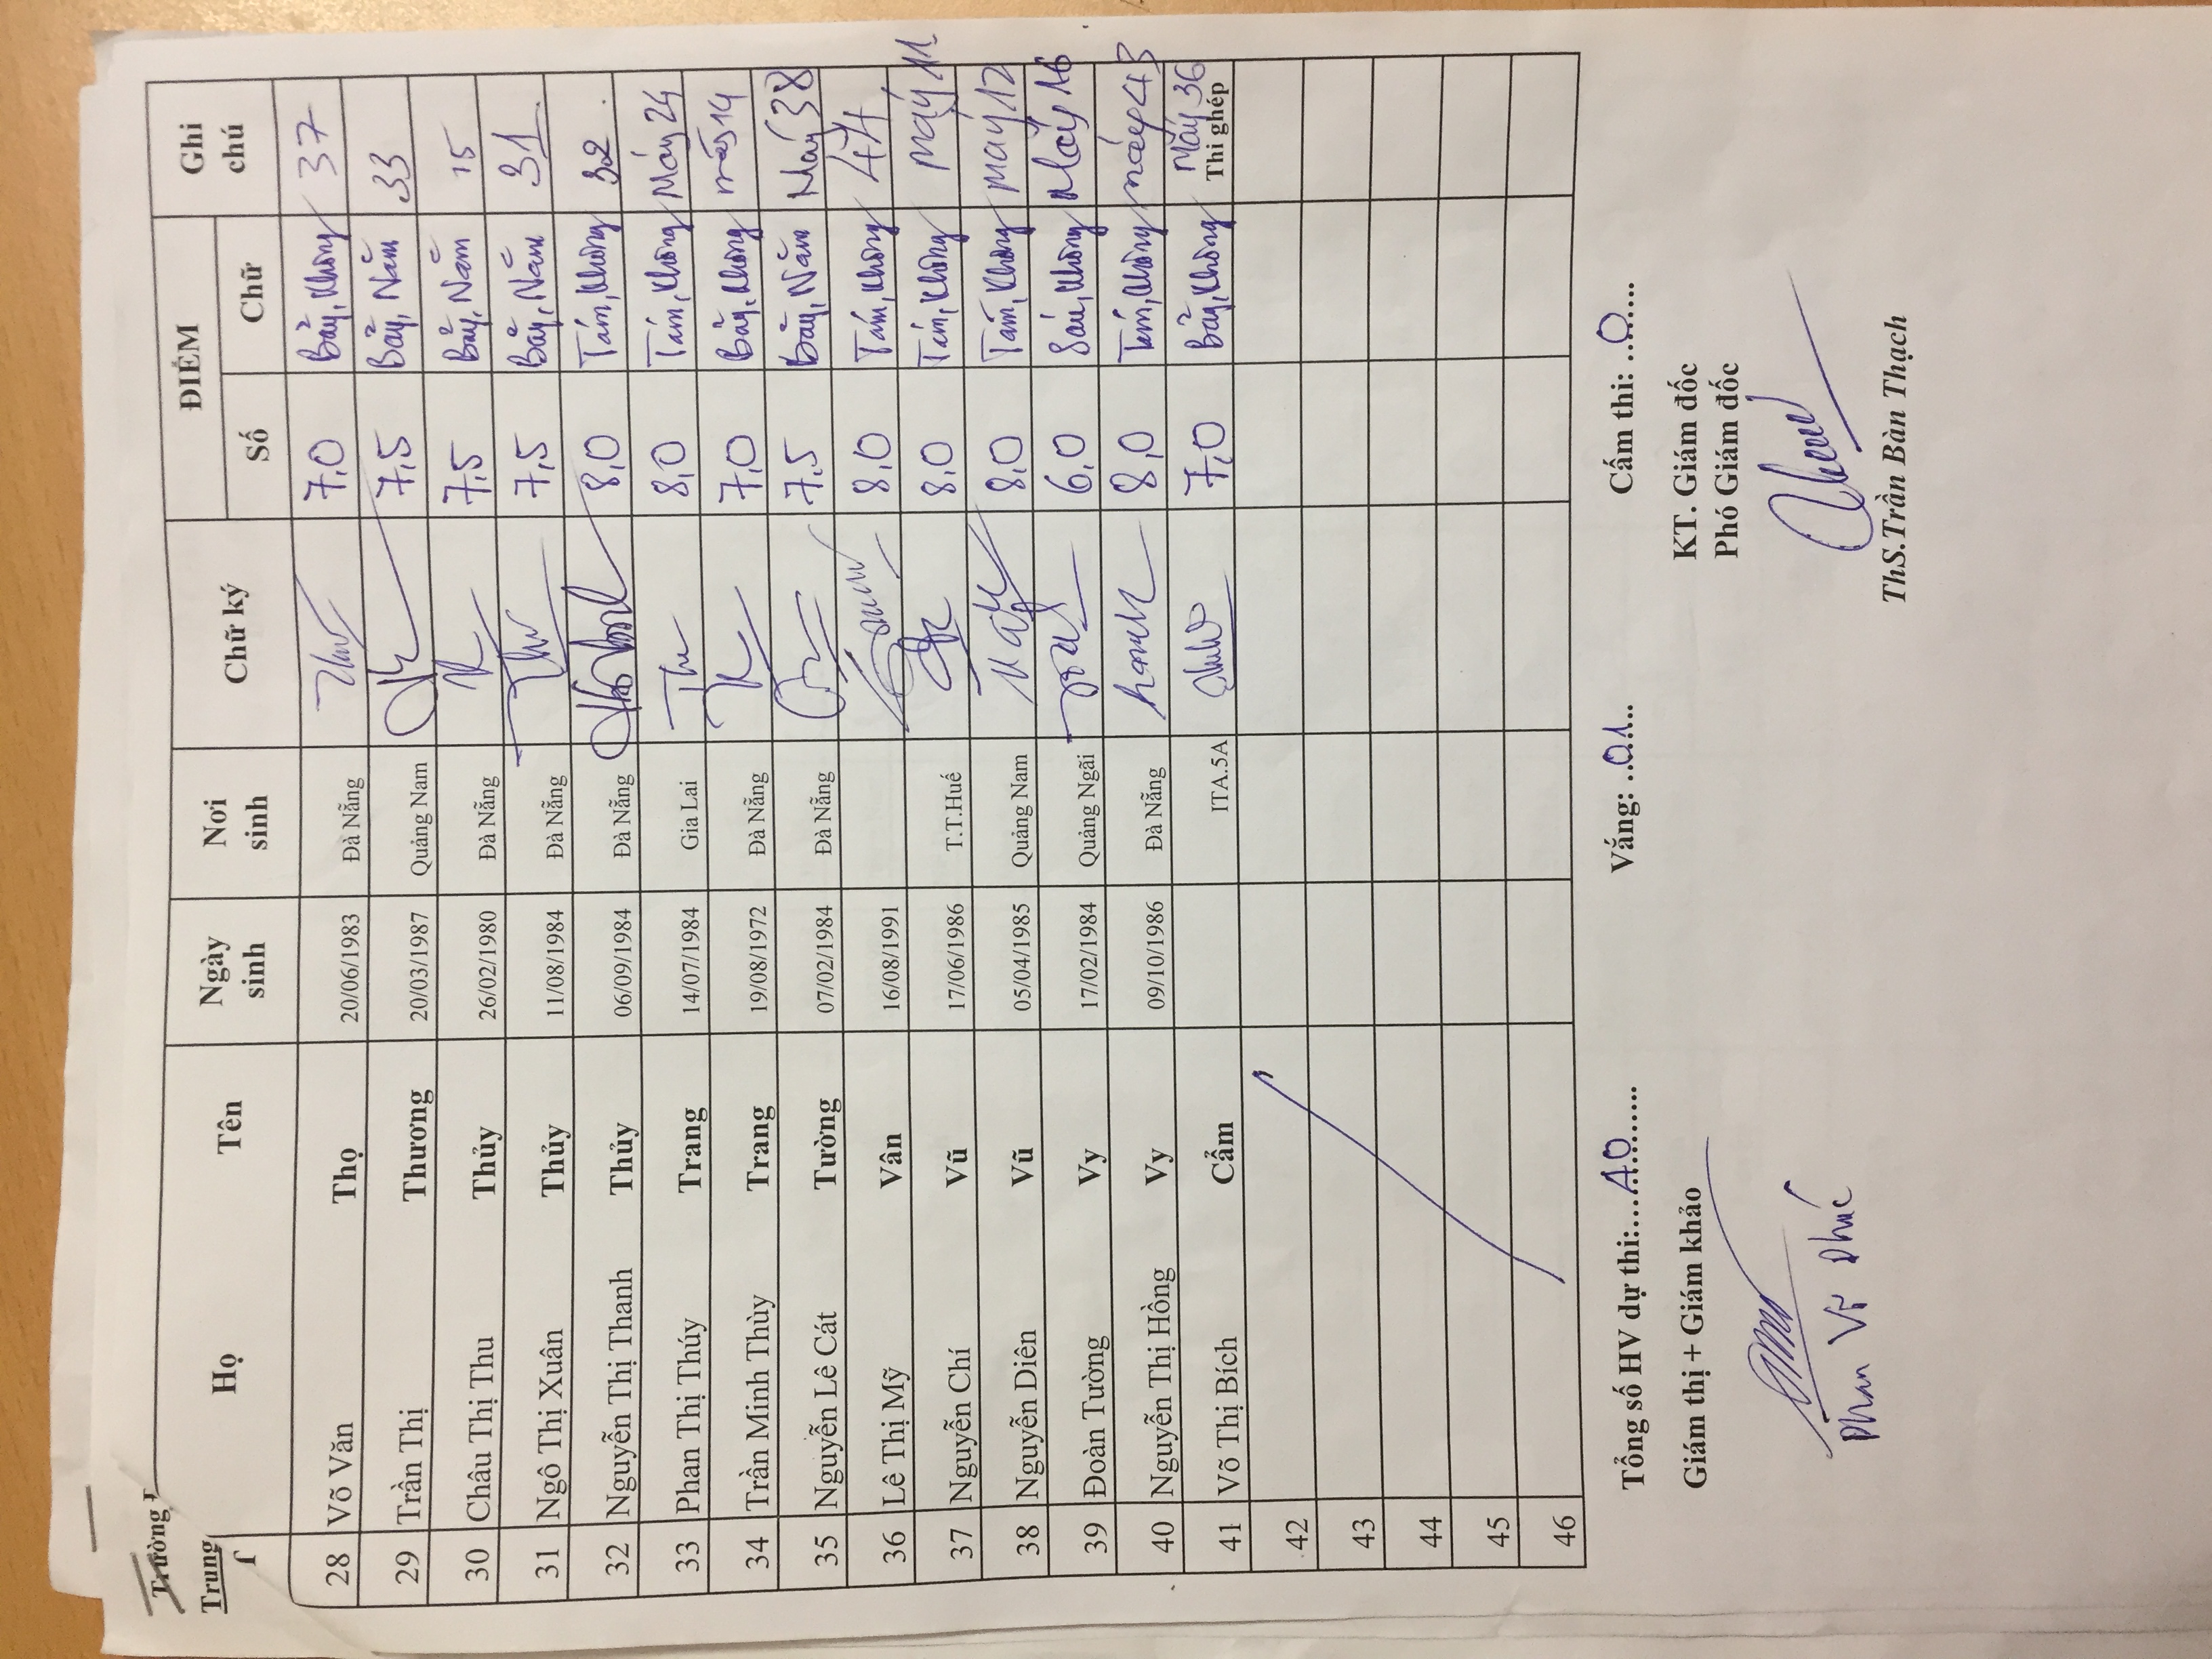 Trường
Trung
Họ Tên Ngày sinh Nơi sinh Chữ ký ĐIỂM Ghi chú
Số Chữ
28 Võ Văn Thọ 20/06/1983 Đà Nẵng 7,0 Bảy, Không 37
29 Trần Thị Thương 20/03/1987 Quảng Nam 7,5 Bảy, Năm 33
30 Châu Thị Thu Thủy 26/02/1980 Đà Nẵng 7,5 Bảy, Năm 15
31 Ngô Thị Xuân Thủy 11/08/1984 Đà Nẵng 7,5 Bảy, Năm 31
32 Nguyễn Thị Thanh Thủy 06/09/1984 Đà Nẵng 8,0 Tám, Không 32
33 Phan Thị Thúy Trang 14/07/1984 Gia Lai 8,0 Tám, Không Máy 24
34 Trần Minh Thùy Trang 19/08/1972 Đà Nẵng 7,0 Bảy, Không máy 14
35 Nguyễn Lê Cát Tường 07/02/1984 Đà Nẵng 7,5 Bảy, Năm Máy 38
36 Lê Thị Mỹ Vân 16/08/1991 8,0 Tám, Không 44
37 Nguyễn Chí Vũ 17/06/1986 T.T.Huế 8,0 Tám, Không máy 11
38 Nguyễn Diên Vũ 05/04/1985 Quảng Nam 8,0 Tám, Không máy 12
39 Đoàn Tường Vy 17/02/1984 Quảng Ngãi 6,0 Sáu, Không Máy 16
40 Nguyễn Thị Hồng Vy 09/10/1986 Đà Nẵng 8,0 Tám, Không máy 43
41 Võ Thị Bích Cẩm ITA.5A 7,0 Bảy, Không Máy 36 Thi ghép
42
43
44
45
46
Tổng số HV dự thi:....40........ Vắng: ..01... Cấm thi: ..0......
Giám thị + Giám khảo KT. Giám đốc
Phó Giám đốc
ThS.Trần Bàn Thạch